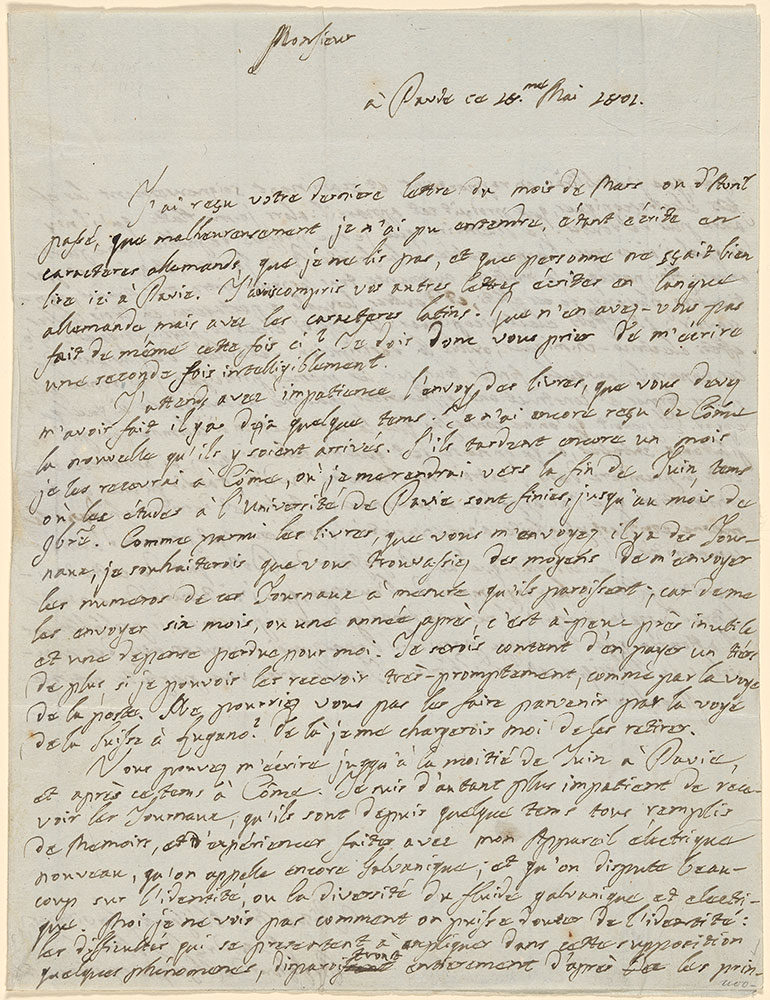 Monsieur
à Pavie ce 18.me Mai 1801.
J'ai reçu votre dernière lettre du mois de Mars ou d'Avril
passé, que malheureusement je n'ai pu entendre, étant écrite en
caracteres allemands, que je ne lis pas, et que personne ne sçait bien
lire ici à Pavie. J'avois compris vos autres lettres écrites en langue
allemande mais avec les caracteres latins. Que n'en avez-vous pas
fait de même cette fois ci? Je dois donc vous prier de m'écrire
une seconde fois intelligiblement.
J'attends avec impatience l'envoy des livres, que vous devez
m'avoir fait il y a deja quelque tems. Je n'ai encore reçu de Côme
la nouvelle qu'ils y soient arrivés. S'ils tardent encore un mois
je les recevrai à Côme, où je me rendrai vers la fin de Juin, tems
où les études à l'Université de Pavie sont finies, jusqu'au mois de
9bre. Comme parmi les livres, que vous m'envoyez il y a des Jour-
naux, je souhaiterois que vous trouvassiez des moyens de m'envoyer
les numeros de ces Journaux à mesure qu'ils paroissent; car de me
les envoyer six mois, ou une année après, c'est à-peu-près inutile
et une depense perdue pour moi. Je serois content d'en payer un tiers
de plus, si je pouvois les recevoir très-promptement, comme par la voye
de la poste. Ne pourriez vous pas les faire parvenir par la voye
de la Suisse à Lugano? de là je me chargerois moi de les retirer.
Vous pouvez m'écrire jusqu'à la moitié de Juin à Pavie,
et après ce tems à Côme. Je suis d'autant plus impatient de rece-
voir les Journaux, qu'ils sont depuis quelque tems tous remplis
de Memoirs, et d'expériences faites avec mon Appareil electrique
nouveau, qu'on appelle encore Galvanique; et qu'on dispute beau-
coup sur l'identité, ou la diversité du fluide galvanique, et electri-
que. Moi je ne vois pas comment on puisse douter de l'identité:
les difficultés qui se presentent à expliquer dans cette supposition
quelques phénomenes, disparoitront entierement d'après les prin-